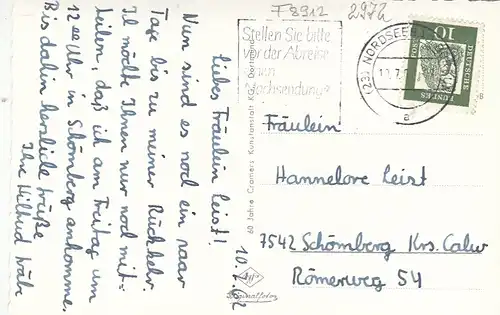 F 8912
2972
Stellen Sie bitte
vor der Abreise
(23) NORDSEEB
DEUTSCHE
BUNDESPOST
10
a
10.7.62
Liebes Fräulein Leist!
Nun sind es noch ein paar
Tage bis zu meiner Rückkehr.
Ich möchte Ihnen nur noch mit-
teilen, daß ich am Freitag um
12.00 Uhr in Schömberg ankomme.
Bis dahin herzliche Grüße
Ihre
60 Jahre Cramers Kunstanstalt KG, Dortmund
Fräulein
Hannelore Leist
7542 Schömberg Krs. Calw
Römerweg 54
Agfa
Originalfoto